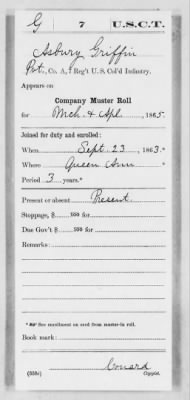 G 7 U.S.C.T.
Asbury Griffin
Pvt., Co. A, 7 Reg't U. S. Col'd Infantry.
Appears on
Company Muster Roll
for Mch. & Apl., 1865.
Joined for duty and enrolled:
When Sept. 23, 1863.*
Where Queen Ann *
Period 3 years.*
Present or absent Present.
Stoppage, $ 100 for
Due Gov't $ 100 for
Remarks:
*See enrollment on card from muster-in roll.
Book mark:
Conard
(358c) Copyist.